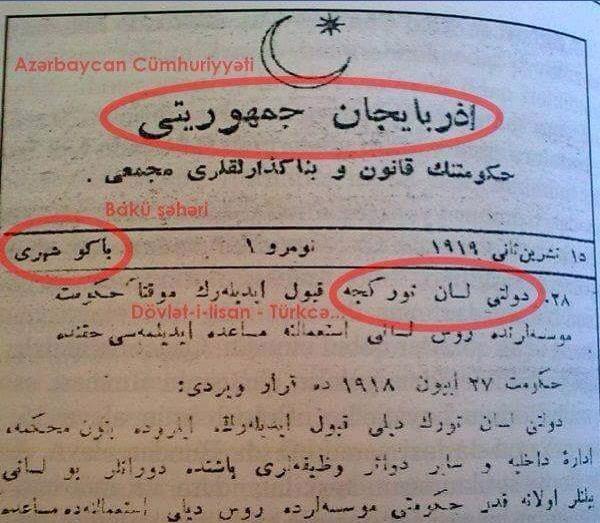 Azərbaycan Cümhuriyyəti
اذربایجان جمهوریتی
حکومتنك قانون و بناگذارلقلری مجمعی .
Bakü şəhəri
۱۵ تشرین ثانی ۱۹۱۹ نومرو ۱ باکو شهری
۲۸. دولتی لسان تورکیجه قبول ایدیله‌رك موقتا حکومت
Dövlət-i-lisan - Türkcə...
موسسه‌لرنده روس لسانی استعمالنه مساعده ایدیلمه‌سی حقنده
حکومت ۲۷ ایون ۱۹۱۸ ده قرار ویردی:
دولتی لسان تورك دیلی قبول ایدیله‌رك، ایلروده بتون محکمه،
ادارهٔ داخلیه و سایر دوائر وظیفه‌لری باشنده دورانلر بو لسانی
بیلنلر اولانه قدر حکومتی موسسه‌لرده روس دیلی استعمالنه‌ده مساعده